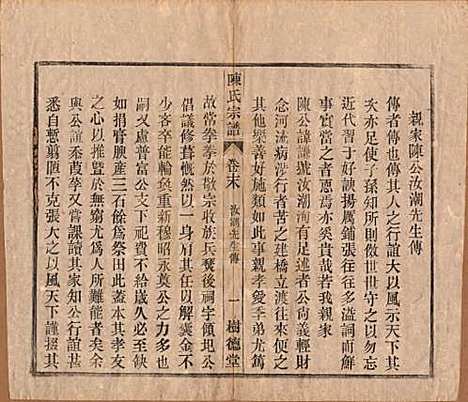 親家陳公汝潮先生傳
傳者傳也傳其人之行誼大以風示天下其
次亦足使子孫知所則傚世世守之以勿替
近代習於諛詞揚厲鋪張往往大過其人本
事實當之者亦矣貴焉若我親家
陳公諱謙號汝潮洵有足述者公尚義輕財
念河流病涉行者苦之建橋立渡往來便之
其他樂善好施類如此事親孝愛季弟尤篤
陳氏宗譜
卷末
汝潮先生傳
一
樹德堂
故常拳拳於敬宗收族兵燹後祠宇頹圮公
倡議修葺慨然以一身其任不濟解囊金不
少吝卒能輪奐重新穆昭永奠公之力多也
嗣又慮普富公支下祀事不給歲久必至缺
如捐膏腴產三石餘爲祭田此蓋本其孝友
之心以推暨於無窮尤爲人所難能者矣余
與公誼系葭莩又嘗課讀其家知公行誼甚
悉自慙翦陋不克張大之以風天下謹掇其